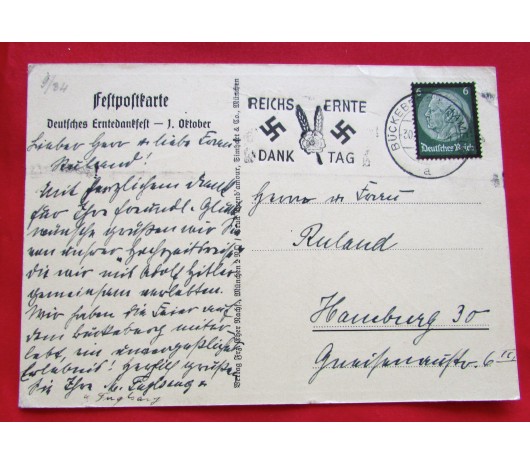 9/34
Festpostkarte
Deutsches Erntedankfest — 1. Oktober
Lieber Herr u. liebe Frau
Ruhland!
Mit herzlichem Dank
für Ihre freundl. Glück-
wünsche grüßen wir Sie
von unsrer Hochzeitsreise
die wir mit Adolf Hitler
gemeinsam verlebten.
Wir haben die Feier auf
dem Bückeberg miter-
lebt, ein unvergeßliches
Erlebnis! Herzl. Grüße
Die Ihre
REICHS ERNTE
DANK TAG
BÜCKEBE
a
6
Deutsches Reich
Herrn u Frau
Ruland
Hamburg 30
Gneisenaustr. 6